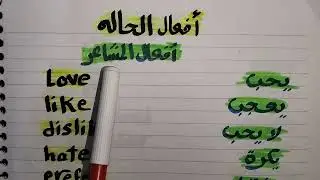 أفعال الحاله
أفعال المشاعر
Love يحب
like يعجب
disli لا يحب
hate يكرة